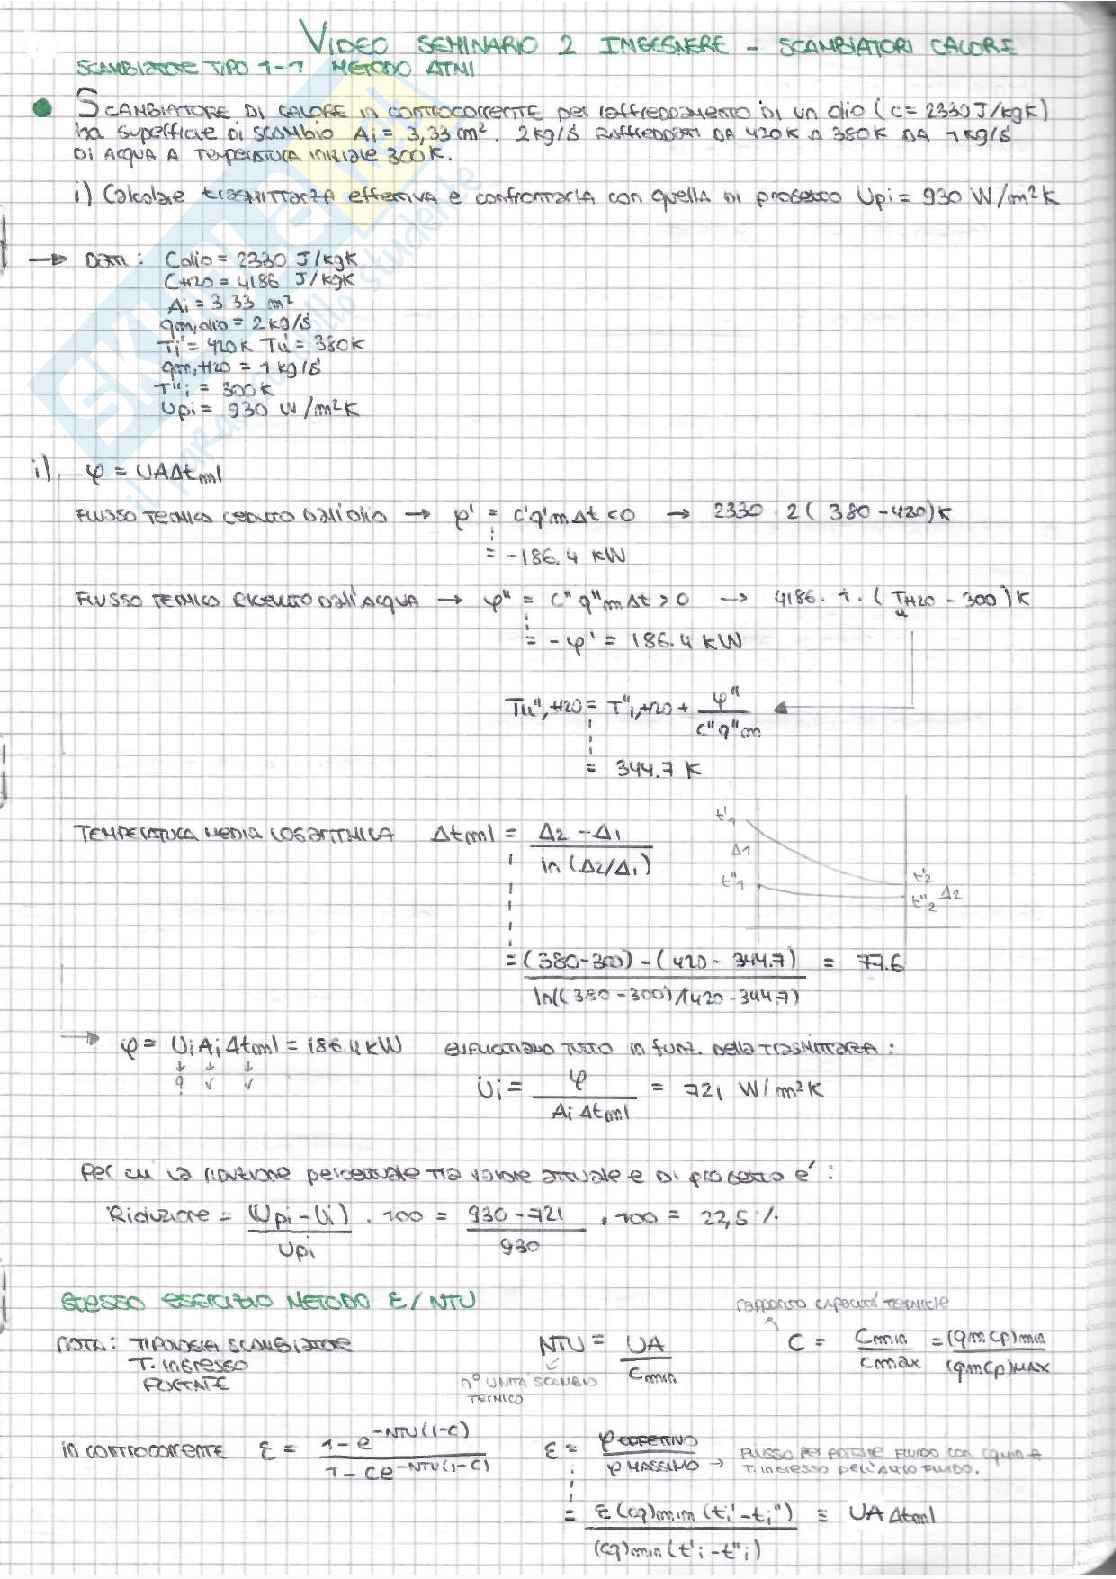 VIDEO SEMINARIO 2 INGEGNERE - SCAMBIATORI CALORE
SCAMBIATORE TIPO 1-1 METODO ΔTML
SCAMBIATORE DI CALORE in controcorrente per raffreddamento di un olio (c=2330 J/kgK)
ha superficie di scambio Ai = 3,33 m². 2 kg/s raffreddati da 420K a 380K da 1 kg/s
di acqua a temperatura iniziale 300K.
i) Calcolare trasmittanza effettiva e confrontarla con quella di processo Upi = 930 W/m²K
→ Dati: Colio = 2330 J/kgK
CH20 = 4186 J/kgK
Ai = 3.33 m²
qm,olio = 2 kg/s
Ti' = 420K Tu' = 380K
qm,H20 = 1 kg/s
T"i = 300K
Upi = 930 W/m²K
i) φ = UAΔtml
FLUSSO TERMICO CEDUTO DALL'OLIO → φ' = c'q'mΔt <0 → 2330 · 2 (380-420)K
= -186.4 KW
FLUSSO TERMICO RICEVUTO DALL'ACQUA → φ" = c"q"mΔt >0 → 4186 · 1 · (TH20 - 300)K
u
= -φ' = 186.4 KW
Tu",H20 = T"i,H20 + φ" / c"q"m
= 344.7 K
TEMPERATURA MEDIA LOGARITMICA Δtml = Δ2 - Δ1 / ln(Δ2/Δ1)
t'1
Δ1
t"1
t'2
t"2 Δ2
= (380-300) - (420-344.7) / ln((380-300)/(420-344.7)) = 77.6
→ φ = UiAiΔtml = 186.4 KW esplicitiamo tutto in funz. della trasmittanza:
↓ ↓ ↓
? √ √
Ui = φ / AiΔtml = 721 W/m²K
Per cui la riduzione percentuale tra valore attuale e di processo è:
Riduzione = (Upi - Ui) / Upi · 100 = 930-721 / 930 · 100 = 22,5 %
STESSO ESERCIZIO METODO ε/NTU
rapporto capacità termiche
NOTA: TIPOLOGIA SCAMBIATORE
T. ingresso
PORTATE
NTU = UA / Cmin
n° UNITÀ SCAMBIO
TERMICO
C = Cmin / cmax = (qmcp)min / (qmcp)MAX
in controcorrente ε = 1-e^-NTU(1-C) / 1-Ce^-NTU(1-C)
ε = φ EFFETTIVO / φ MASSIMO → FLUSSO PER PORTARE FLUIDO CON Cqmin A
T. ingresso DELL'ALTRO FLUIDO.
= ε(cq)min(ti'-ti") / (cq)min(t'i-t"i) ≡ UAΔtml